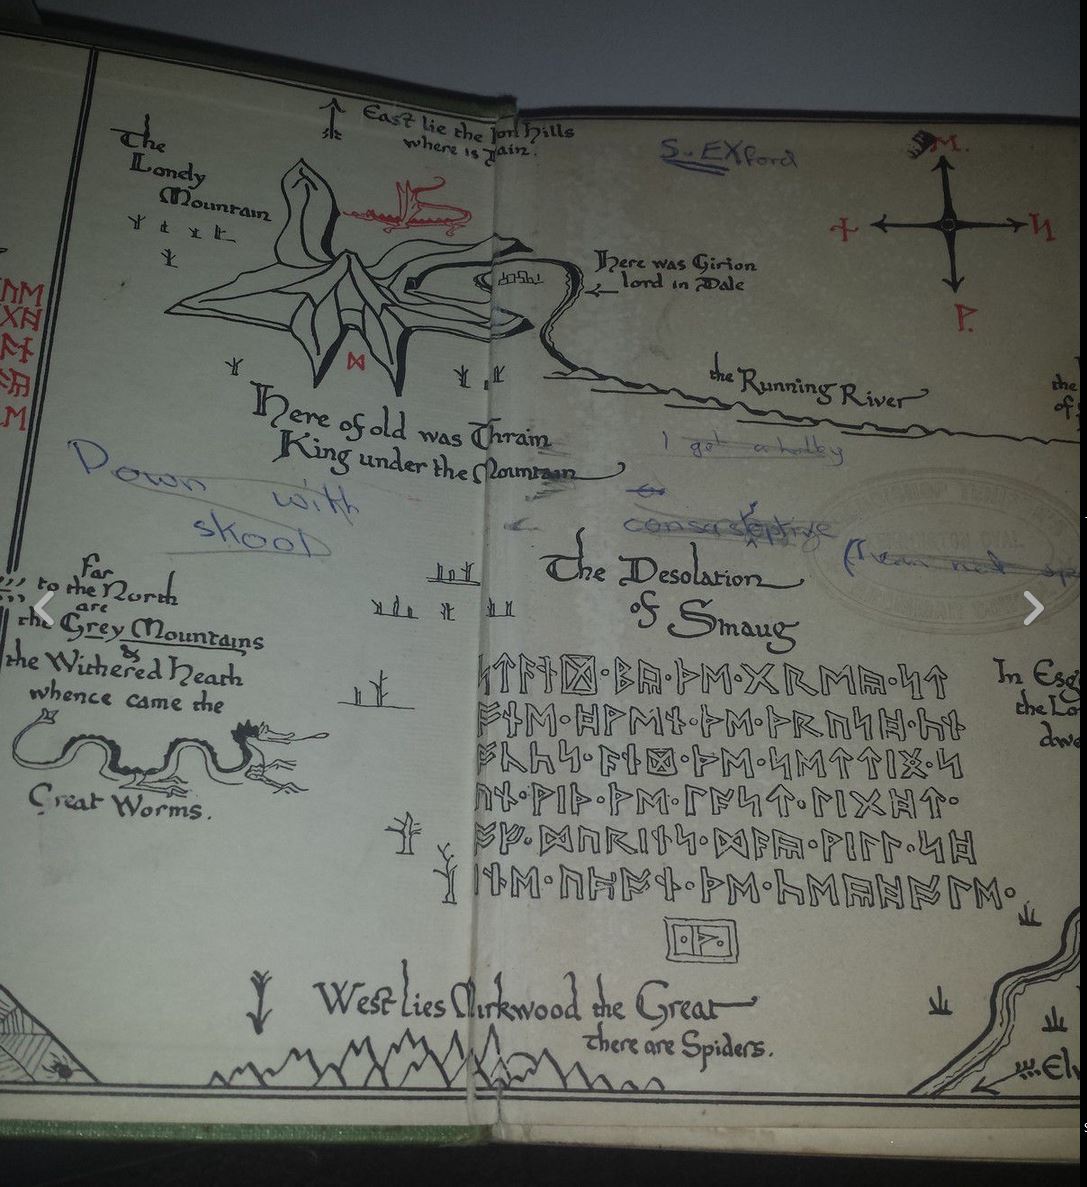 East lie the Iron Hills
where is Dain.
The
Lonely
Mountain
S. Exford
Here was Girion
lord in Dale
the Running River
the
of
Here of old was Thrain
King under the Mountain
I got a
Down with
skool
The Desolation
of Smaug
far
to the North
are
the Grey Mountains
&
the Withered Heath
whence came the
Great Worms.
ᛋᛏᚪᚾᛞ·ᛒᚣ·ᚦᛖ·ᚷᚱᛖᚣ·ᛋᛏ
ᚩᚾᛖ·ᚻᚹᛖᚾ·ᚦᛖ·ᚦᚱᚢᛋᚻ·ᚳᚾ
ᚩᚳᚳᛋ·ᚪᚾᛞ·ᚦᛖ·ᛋᛖᛏᛏᛁᛝ·ᛋ
ᚢᚾ·ᚹᛁᚦ·ᚦᛖ·ᛚᚪᛋᛏ·ᛚᛁᚷᚻᛏ·
ᚩᚠ·ᛞᚢᚱᛁᚾᛋ·ᛞᚪᚣ·ᚹᛁᛚᛚ·ᛋᚻ
ᛁᚾᛖ·ᚢᛈᚩᚾ·ᚦᛖ·ᚳᛖᚣᚻᚩᛚᛖ·
·ᚦ·
In Esg
the Lo
dwe
West lies Mirkwood the Great
there are Spiders.